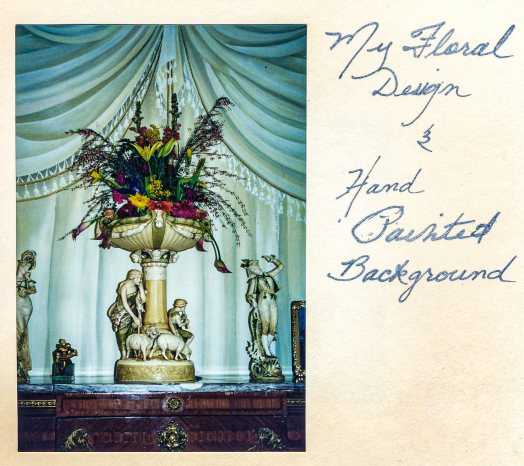 My Floral
Design
&
Hand
Painted
Background